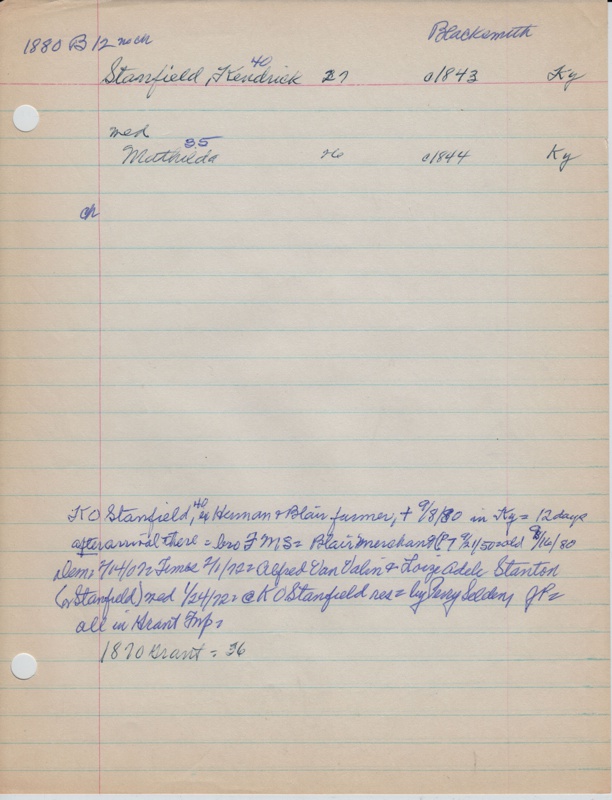 1880 B12 no ch Blacksmith
Stanfield, Kendrick 40 27 c1843 Ky
med
Mathilda 35 26 c1844 Ky
ch
K O Stanfield, 40 Herman & Blair farmer, + 9/8/80 in Ky = 12 days
after arrival there = bro F M S = Blair merchant 9/16/80
Dem = Times 2/1/72 = Alfred Van Valin & Adele Stanton
(or Stanfield) med 1/24/72 = @ K O Stanfield res = by Perry Selden, J P =
all in Grant Twp =
1870 Grant = 36